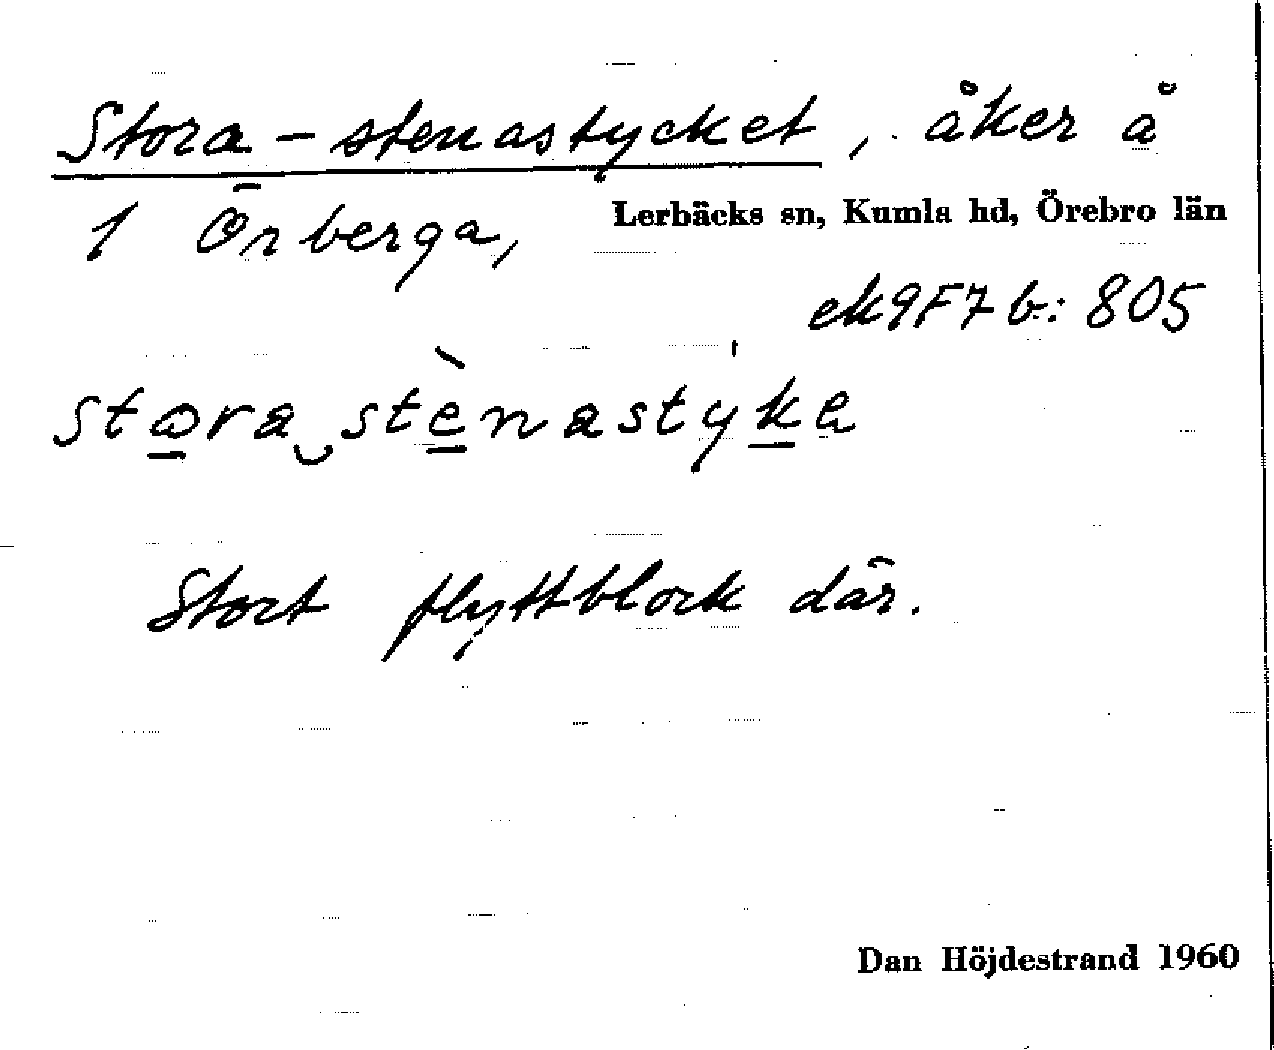 Stora-stenastycket, åker å
1 Örberga, Lerbäcks sn, Kumla hd, Örebro län
ek9F7b: 805
stora‿stènastý̍ke
Stort flyttblock där.
Dan Höjdestrand 1960